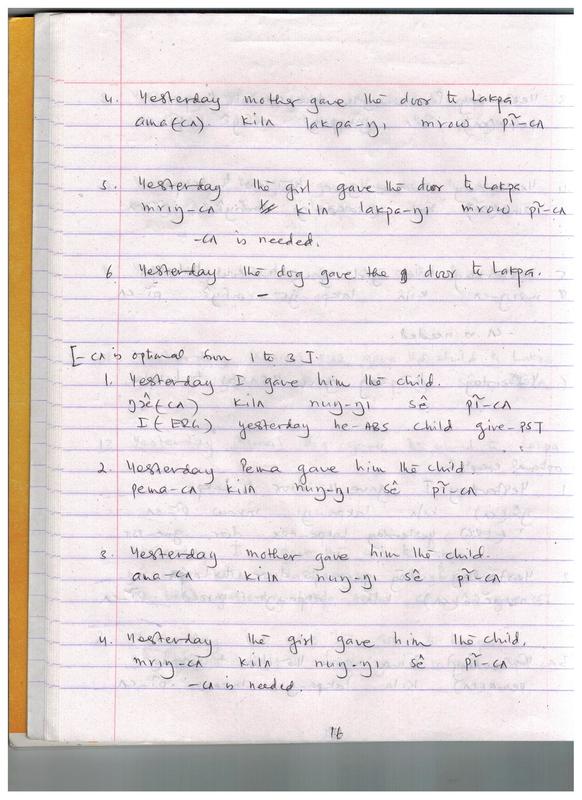 4. Yesterday mother gave the door to Lakpa
ama(-cʌ) kilʌ lakpa-ŋɪ mrow pĩ-cʌ
5. Yesterday the girl gave the door to Lakpa
mrɪŋ-cʌ kilʌ lakpa-ŋɪ mrow pĩ-cʌ
-cʌ is needed.
6. Yesterday the dog gave the door to Lakpa.
–
[-cʌ is optional from 1 to 3].
1. Yesterday I gave him the child.
ŋxê(-cʌ) kilʌ nuŋ-ŋɪ sê pĩ-cʌ
I(-ERG) yesterday he-ABS child give-PST
2. Yesterday Pema gave him the child
pema-cʌ kilʌ nuŋ-ŋɪ sê pĩ-cʌ
3. Yesterday mother gave him the child.
ama-cʌ kilʌ nuŋ-ŋɪ sê pĩ-cʌ
4. Yesterday the girl gave him the child.
mrɪŋ-cʌ kilʌ nuŋ-ŋɪ sê pĩ-cʌ
-cʌ is needed.
16